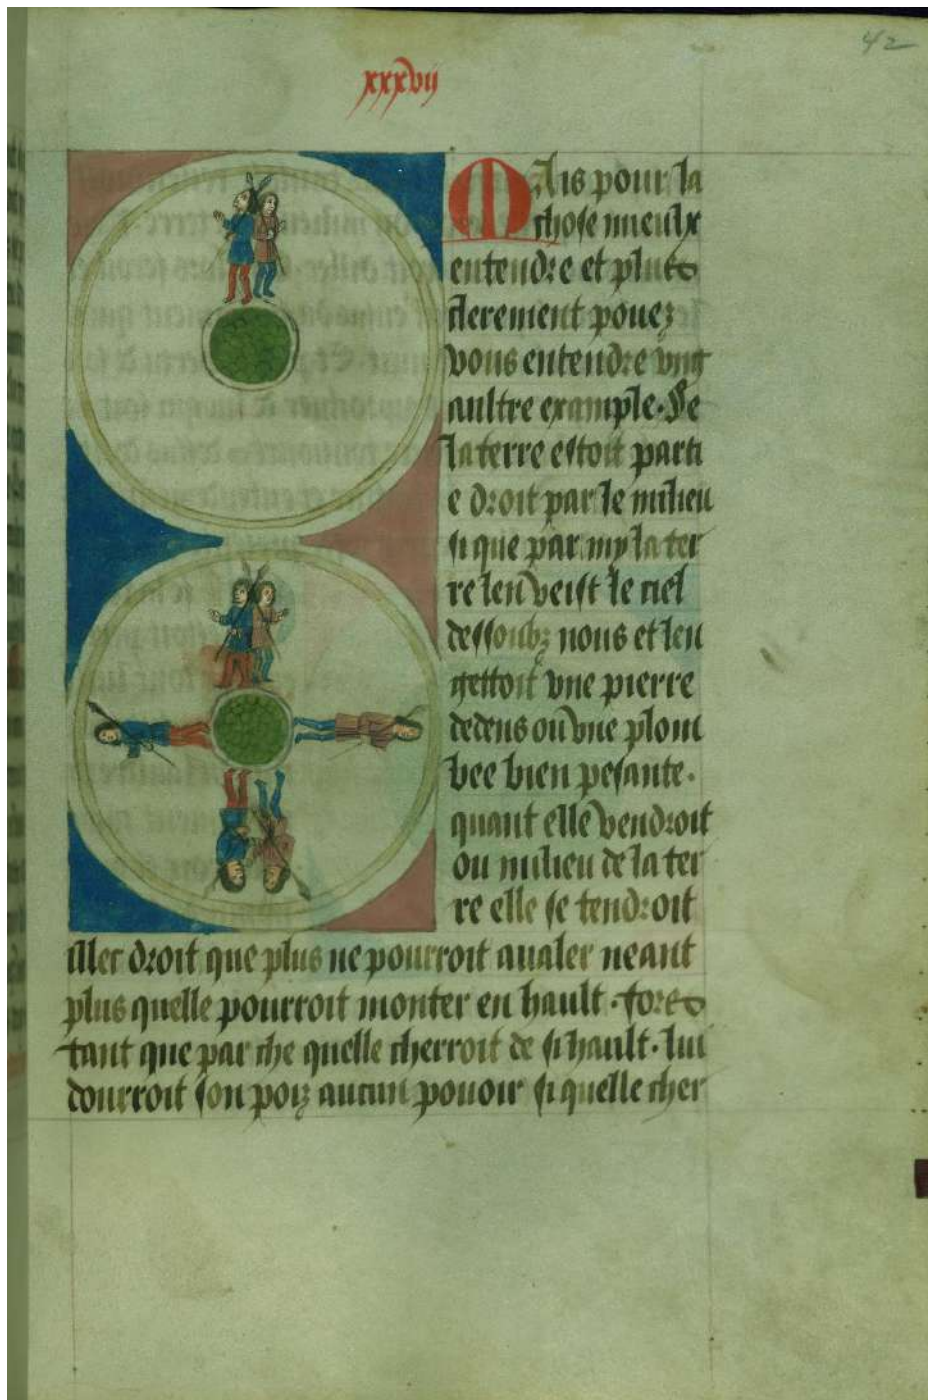 42
xxxvij
Mais pour la
chose mieulx
entendre et plus
clerement pouez
vous entendre vng
aultre example. Se
la terre estoit parti
e droit par le milieu
si que par my la ter
re len veist le ciel
dessoubz nous et len
gettoit vne pierre
dedens ou vne plom
bee bien pesante.
quant elle vendroit
ou milieu de la ter
re elle se tendroit
illec droit que plus ne pourroit aualer neant
plus quelle pourroit monter en hault. fors
tant que par che quelle cherroit de si hault. lui
donrroit son poiz aucun pouoir si quelle cher